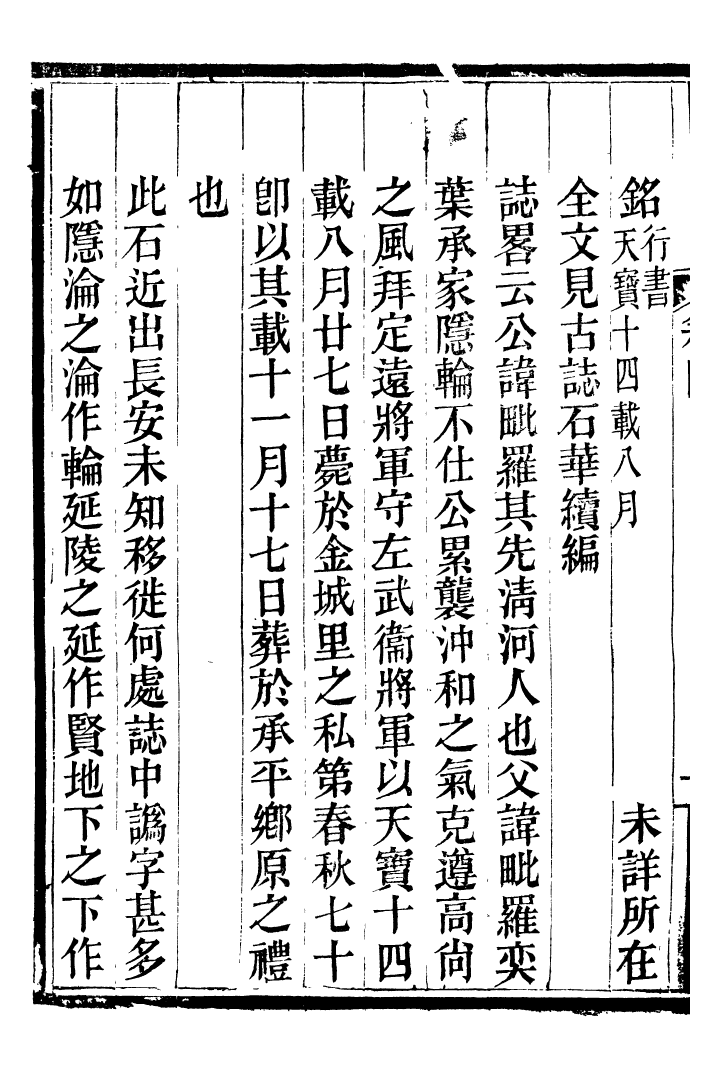 銘行書天寶十四載八月　未詳所在
全文見古誌石華續編
誌畧云公諱毗羅其先淸河人也父諱毗羅奕
葉承家隱輪不仕公累襲沖和之氣克遵高尙
之風拜定遠將軍守左武衞將軍以天寶十四
載八月廿七日薨於金城里之私第春秋七十
卽以其載十一月十七日葬於承平鄉原之禮
也
此石近出長安未知移徙何處誌中譌字甚多
如隱淪之淪作輪延陵之延作賢地下之下作